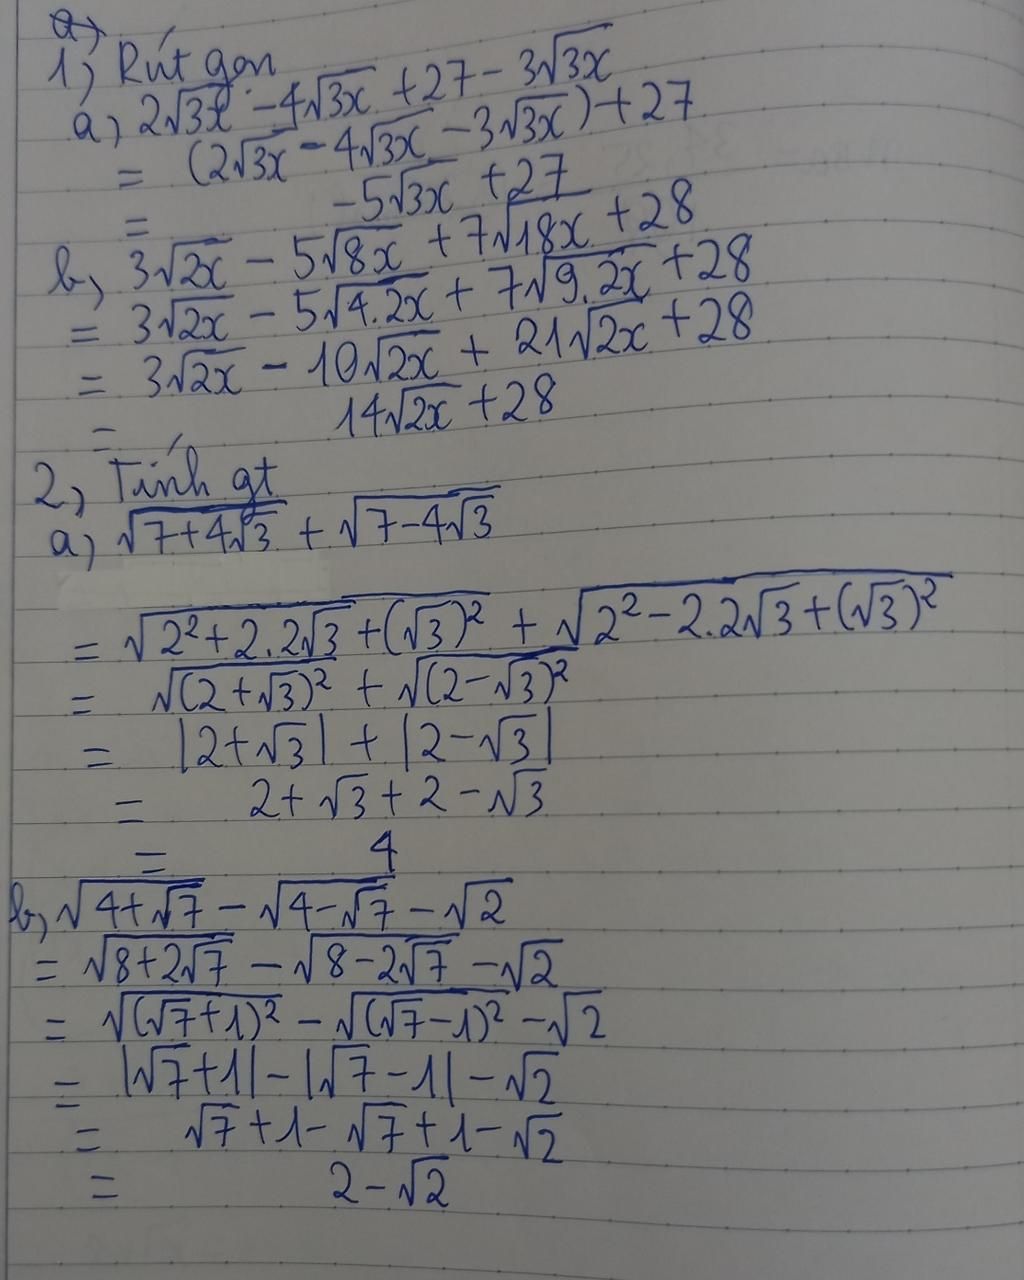 a)
1, Rút gọn
a, 2√3x - 4√3x + 27 - 3√3x
= (2√3x - 4√3x - 3√3x) + 27
= -5√3x + 27
b, 3√2x - 5√8x + 7√18x + 28
= 3√2x - 5√4.2x + 7√9.2x + 28
= 3√2x - 10√2x + 21√2x + 28
= 14√2x + 28
2, Tính gt
a, √7+4√3 + √7-4√3
= √2²+2.2√3+(√3)² + √2²-2.2√3+(√3)²
= √(2+√3)² + √(2-√3)²
= |2+√3| + |2-√3|
= 2+√3+2-√3
= 4
b, √4+√7 - √4-√7 - √2
= √8+2√7 - √8-2√7 - √2
= √(√7+1)² - √(√7-1)² - √2
= |√7+1| - |√7-1| - √2
= √7+1-√7+1-√2
= 2-√2